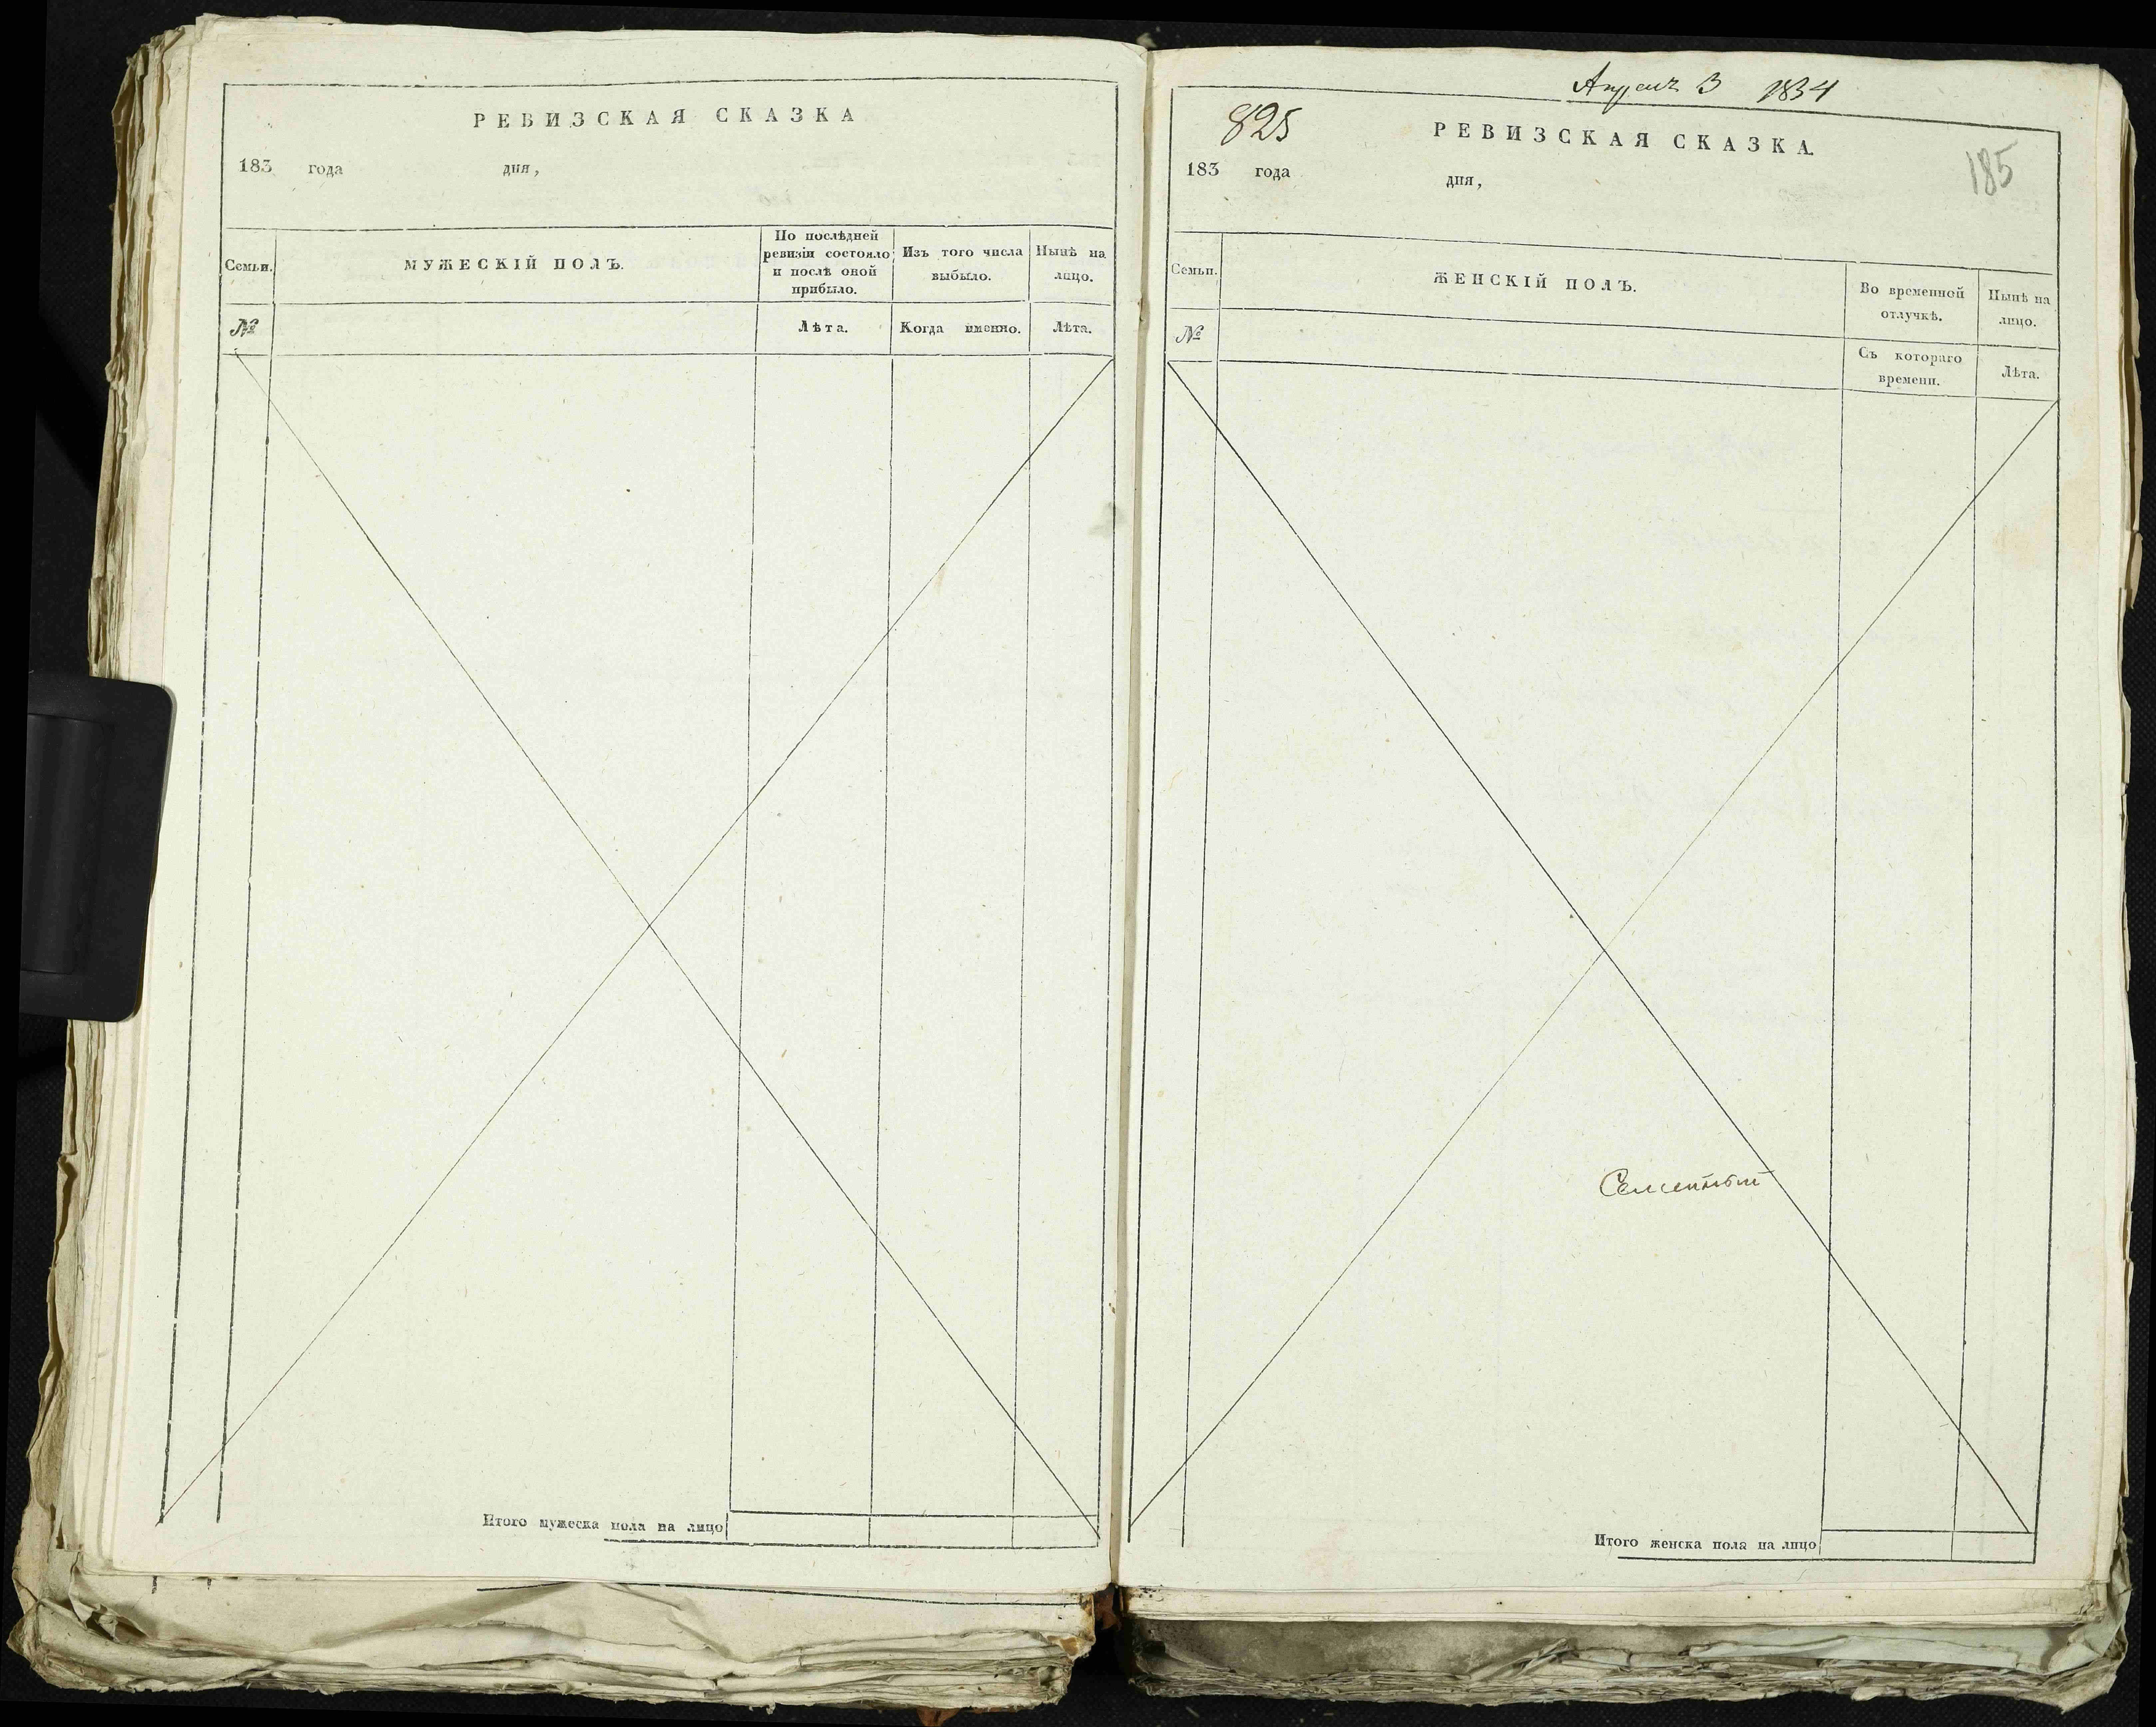 РЕВИЗСКАЯ СКАЗКА
183 года дня,
Семьи.
МУЖЕСКІЙ ПОЛЪ.
По послѣдней
ревизіи состояло
и послѣ оной
прибыло.
Изъ того числа
выбыло.
Нынѣ на
лицо.
№
Лѣта.
Когда именно.
Лѣта.
Итого мужеска пола на лицо
1834
825
РЕВИЗСКАЯ СКАЗКА
185
183 года дня,
Семьи.
ЖЕНСКІЙ ПОЛЪ.
Во временной
отлучкѣ.
Нынѣ на
лицо.
№
Съ котораго
времени.
Лѣта.
Итого женска пола на лицо